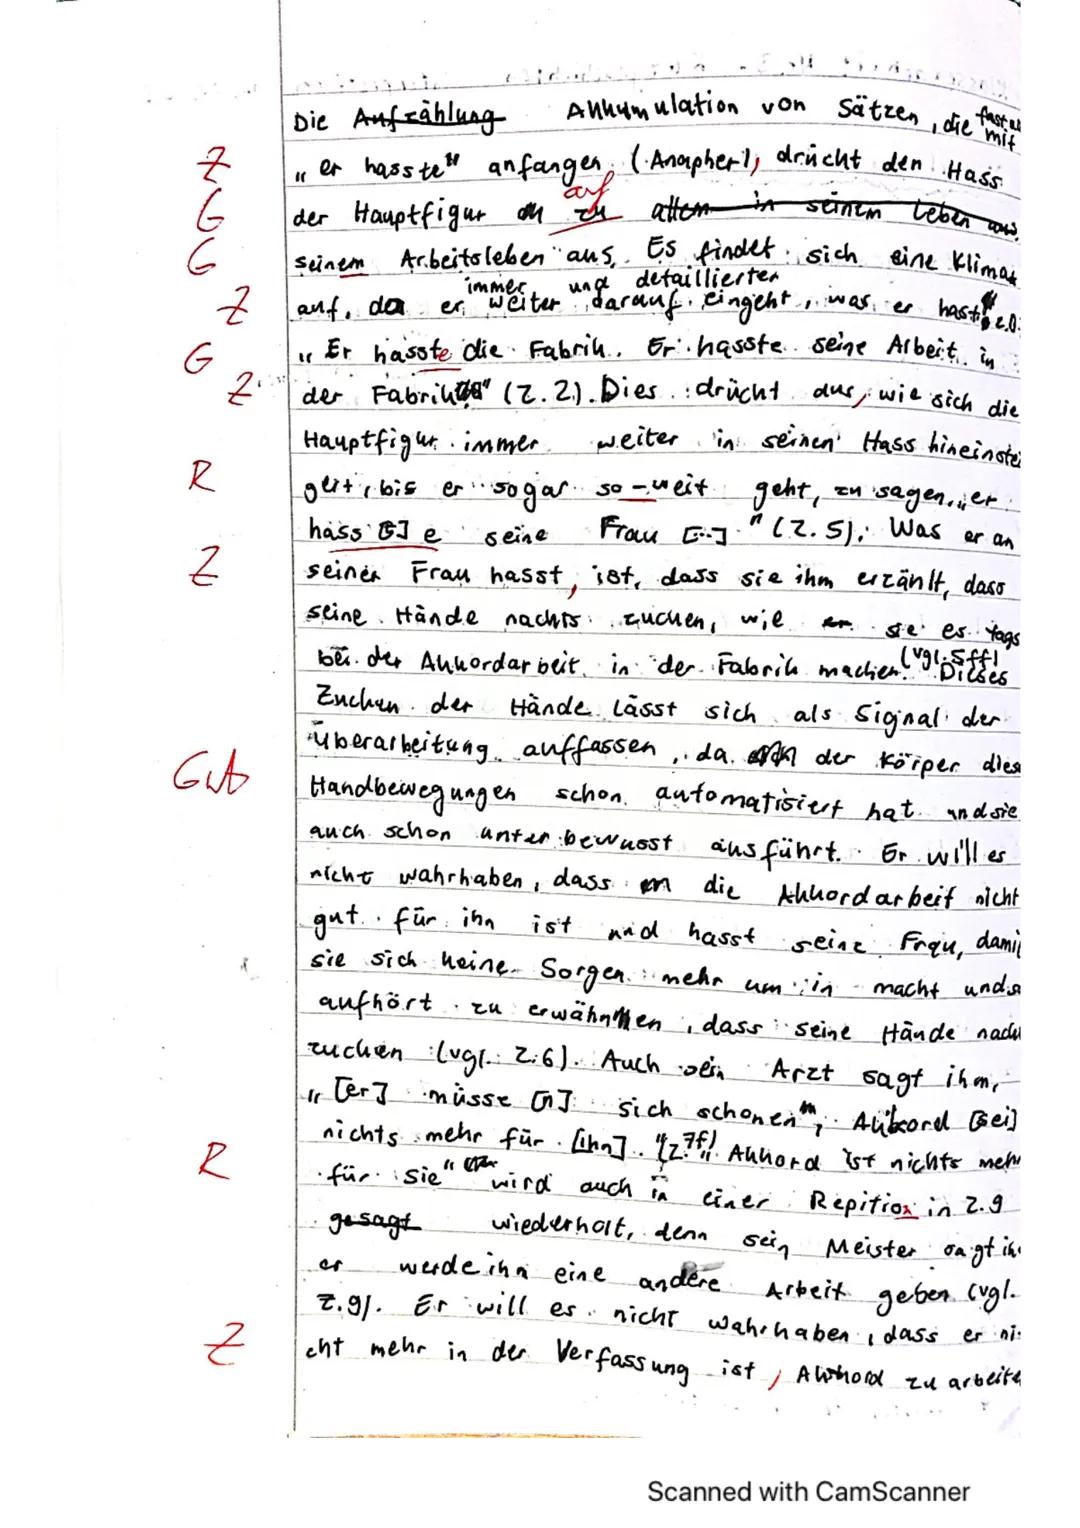 Die Aufzählung Akkumulation von Sätzen, die fast mit
Z „er hasste" anfangen (Anapher), drückt den Hass
G der Hauptfigur zu auf allem in seinem Leben aus.
G seinem Arbeitsleben aus. Es findet sich eine Klimax
immer und detaillierter
Z auf, da er weiter darauf eingeht, was er hasst
G „Er hasste die Fabrik. Er hasste seine Arbeit in
Z der Fabrik" (Z.2). Dies drückt aus, wie sich die
Hauptfigur immer weiter in seinen Hass hineinstei
R gert, bis er sogar so weit geht, zu sagen, „er
hass[t]e seine Frau [...]" (Z.5). Was er an
Z seiner Frau hasst, ist, dass sie ihm erzählt, dass
seine Hände nachts zucken, wie sie es tags
bei der Akkordarbeit in der Fabrik machen (vgl. 5ff). Dieses
Zucken der Hände lässt sich als Signal der
Überarbeitung auffassen, da der Körper diese
Gut Handbewegungen schon automatisiert hat und sie
auch schon unterbewusst ausführt. Er will es
nicht wahrhaben, dass die Akkordarbeit nicht
gut für ihn ist und hasst seine Frau, damit
sie sich keine Sorgen mehr um in macht und
aufhört zu erwähnen, dass seine Hände nach
zucken (vgl. Z.6). Auch sein Arzt sagt ihm,
„[er] müsse [n] sich schonen", Akkord [sei]
nichts mehr für [ihn]." (Z.7f) „Akkord ist nichts mehr
R für sie" wird auch in einer Repition in Z.9
gesagt wiederholt, denn sein Meister sagt ihm
er werde ihn eine andere Arbeit geben (vgl.
Z.9). Er will es nicht wahrhaben, dass er ni-
Z cht mehr in der Verfassung ist, Akkord zu arbeiten
Scanned with CamScanner